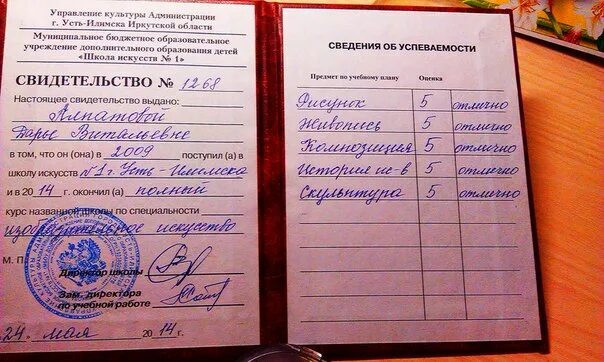 Управление культуры Администрации
г. Усть-Илимска Иркутской области
Муниципальное бюджетное образовательное
учреждение дополнительного образования детей
«Школа искусств № 1»
СВИДЕТЕЛЬСТВО № 1268
Настоящее свидетельство выдано:
Алпатовой
Дарье Витальевне
в том, что он (она) в 2009 поступил (а) в
школу искусств №1 г. Усть-Илимска
и в 2014 г. окончил (а) полный
курс названной школы по специальности
изобразительное искусство
М. П.
Директор школы
Зам. директора
по учебной работе
24 мая 2014 г.
СВЕДЕНИЯ ОБ УСПЕВАЕМОСТИ
Предмет по учебному плану Оценка
Рисунок 5 отлично
Живопись 5 отлично
Композиция 5 отлично
История ис-в 5 отлично
Скульптура 5 отлично